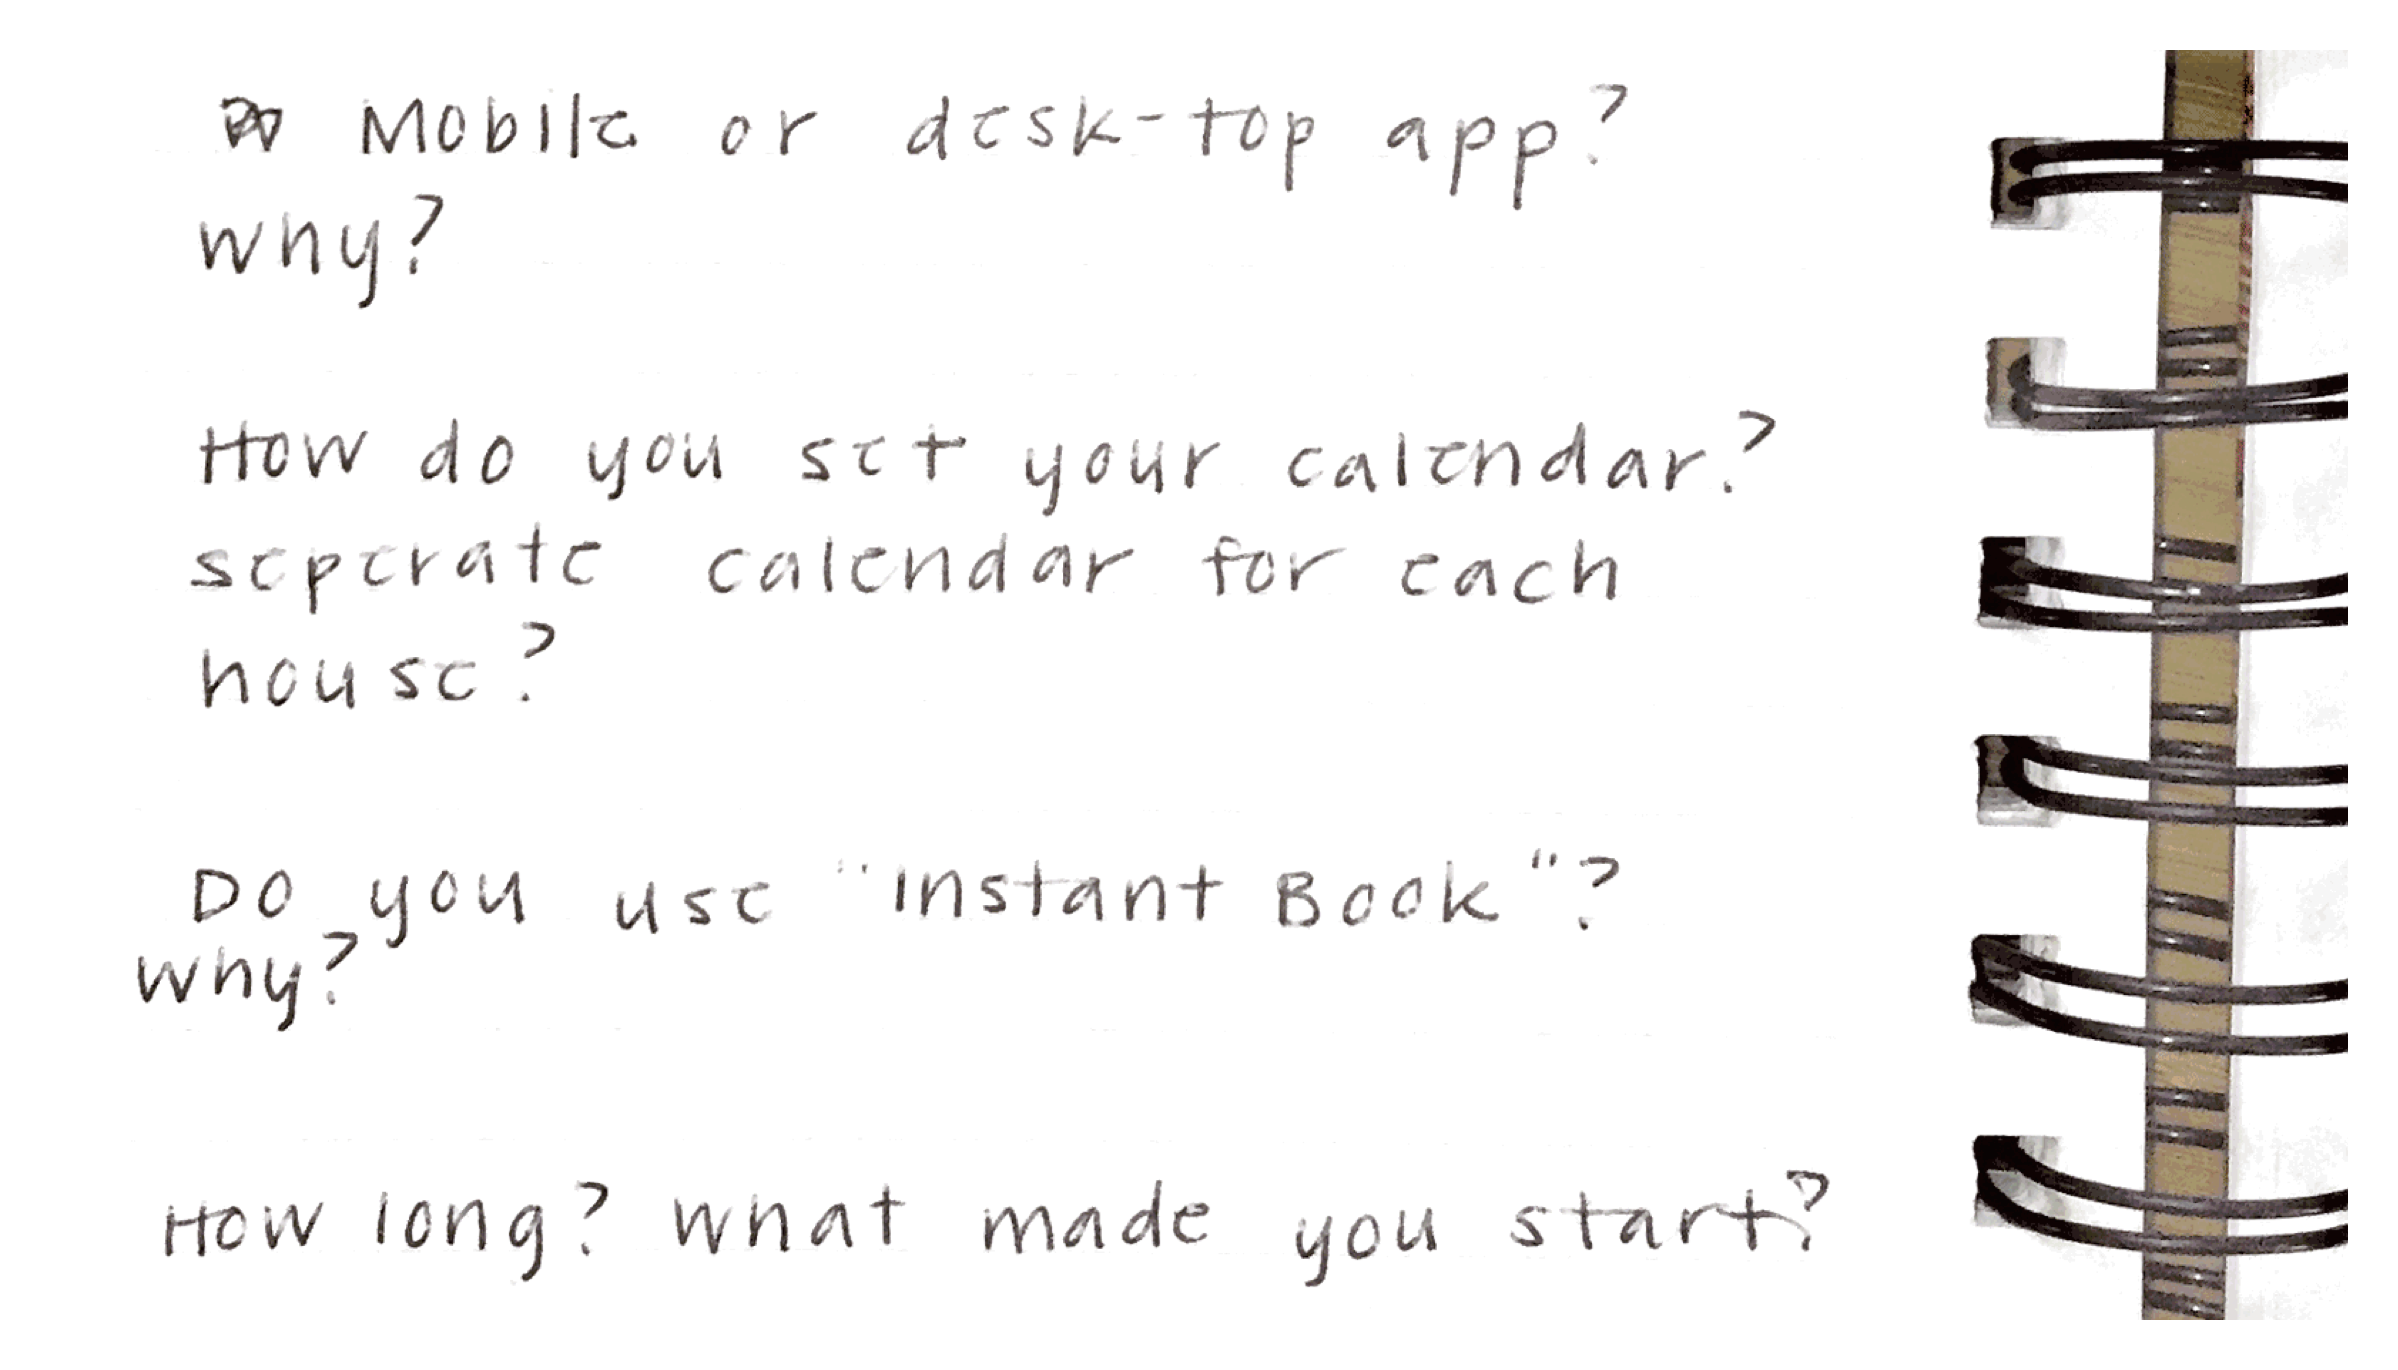 Mobile or desk-top app?
why?
How do you set your calendar?
seperate calendar for each
house?
Do you use "Instant Book"?
why?
How long? What made you start?